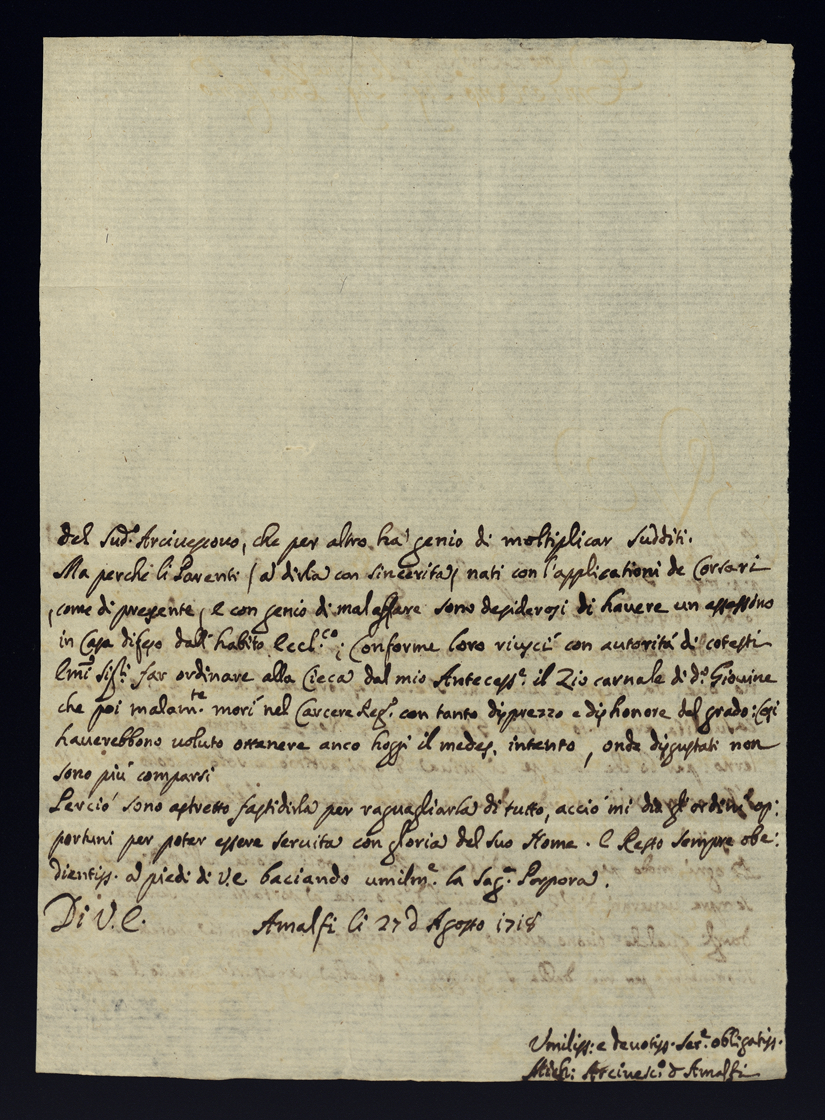 del sud.º Arcivescovo, che per altro ha' genio di moltiplicar sudditi.
Ma perche li Parenti (a' dirla con sincerità) nati con l'applicationi de Corsari
(come di presente, e con genio di mal affare sono desiderosi di havere un assassino
in Casa difeso dall'habito Eccl.co; Conforme loro riuscì con autorità di cotesti
far ordinare alla Cieca dal mio Antecess.e il Zio carnale di d.º Giovine
che poi malam.te morì nel Carcere Reg.º con tanto disprezzo e dishonore del grado: Così
haverebbono voluto ottenere anco hoggi il medes. intento, onde disgustati non
sono più comparsi
Perciò sono astretto fastidirla per raguagliarla di tutto, acciò mi dia gl'ordini op:
portuni per poter essere servita con gloria del suo Nome. E Resto sempre obe:
dientiss. a' piedi di V.E. baciando umilm.e la Sag.a Porpora.
Di V.E. Amalfi li 27 d Agosto 1718
Umiliss: e devotiss. Ser.e obligatiss.
Mich: Arcivesc.º d Amalfi